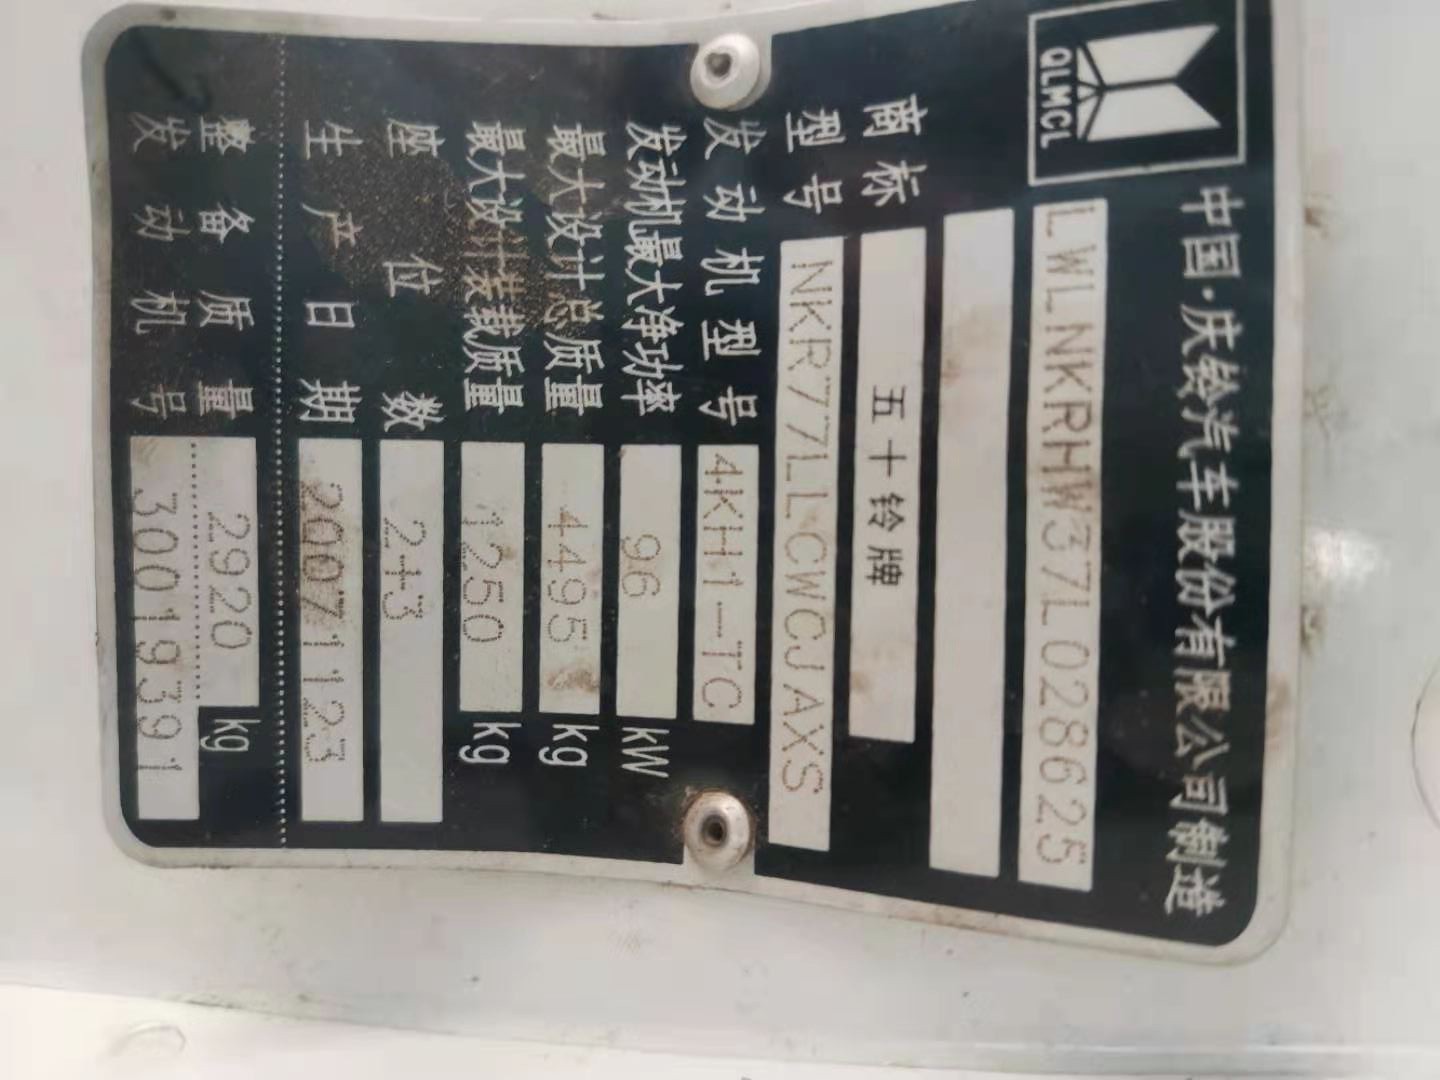 QLMCL
中国·庆铃汽车股份有限公司制造
LWLNKRHW37L028625
商标 五十铃牌
型号 NKR77LLCWCJAXS
发动机型号 4KH1-TC
发动机最大净功率 96 kW
最大设计总质量 4495 kg
最大设计装载质量 1250 kg
座位数 2+3
生产日期 20071123
整备质量 2920 kg
发动机号 30019391